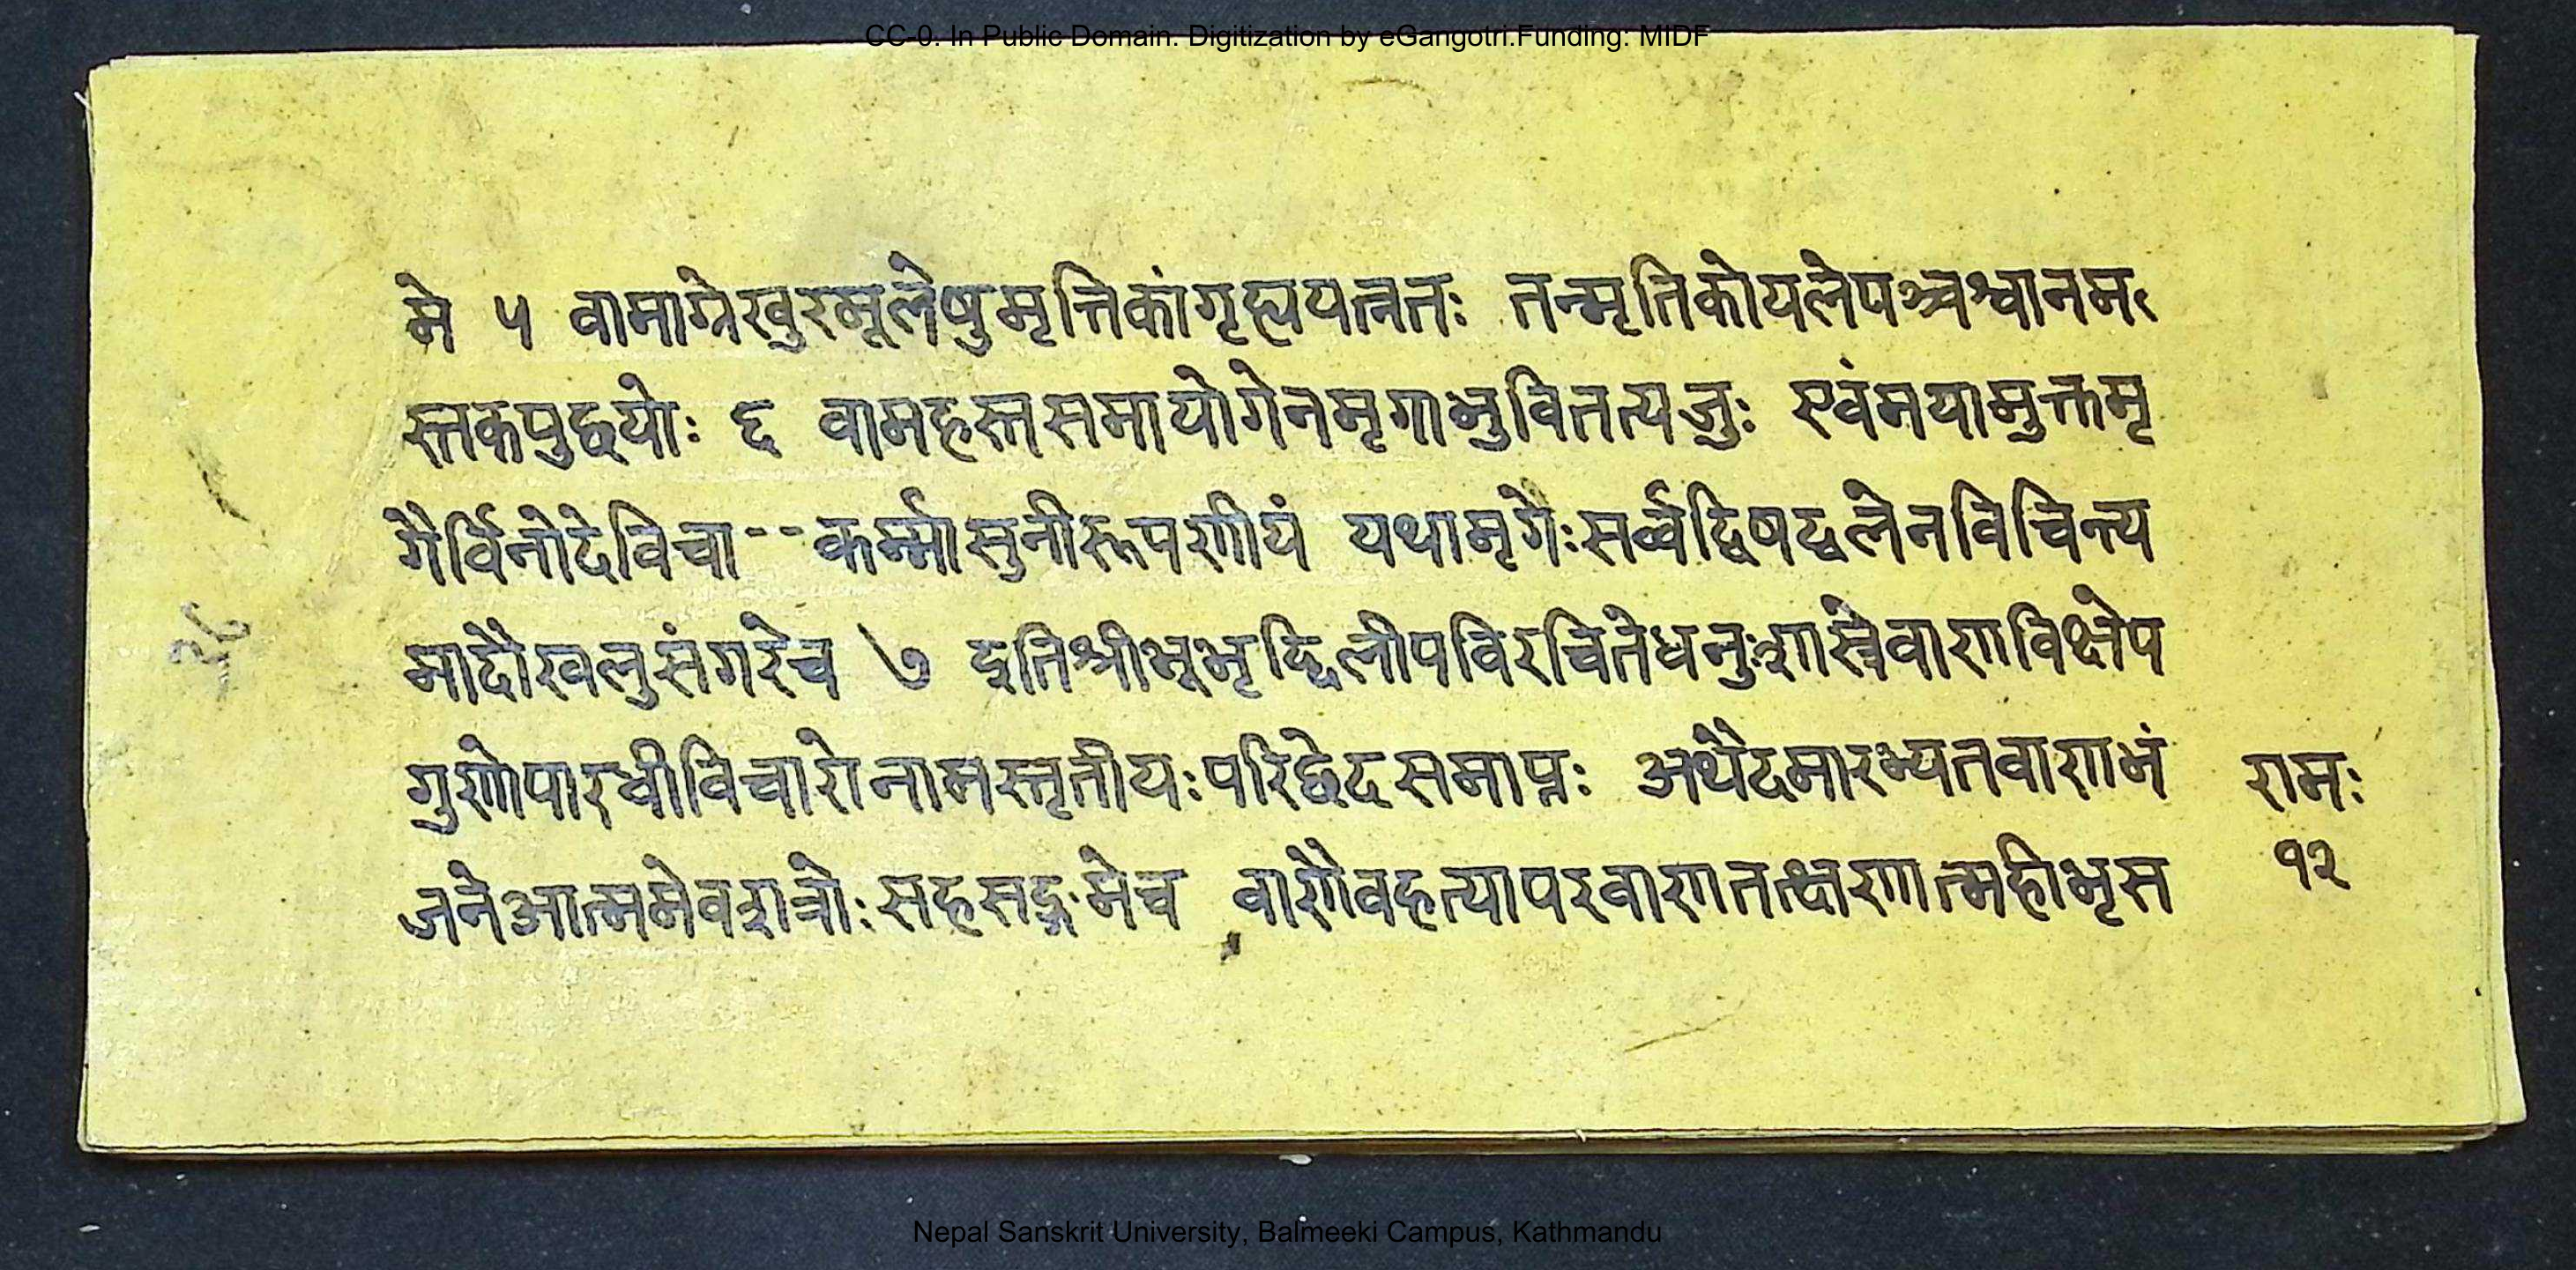 CC-0. In Public Domain. Digitization by eGangotri.Funding: MIDF
मे ५ वामाग्रेखुरमूलेषुमृत्तिकांगृह्ययत्नतः तन्मृतिकोयलेपञ्चश्वानम
स्तकपुछयोः ६ वामहस्तसमायोगेनमृगाभुवितत्यजुः एवंमयामुक्तमृ
गैर्विनोदेविचा--कर्म्मासुनीरूपणीयं यथामृगैःसर्व्वद्विषद्वलेनविचिन्त्य
मादौखलुसंगरेच ७ इतिश्रीभूभृद्दिलीपविरचितेधनुःशास्त्रेवाणविक्षेप
गुणोपारधीविचारोनामस्तृतीयःपरिछेदसमाप्तः अथैदमारभ्यतवाणाभं
जनेआत्ममेवशत्रोःसहसङ्गमेच वाणैवहत्यापरवाणतत्क्षणात्महीभृस
रामः
१२
Nepal Sanskrit University, Balmeeki Campus, Kathmandu